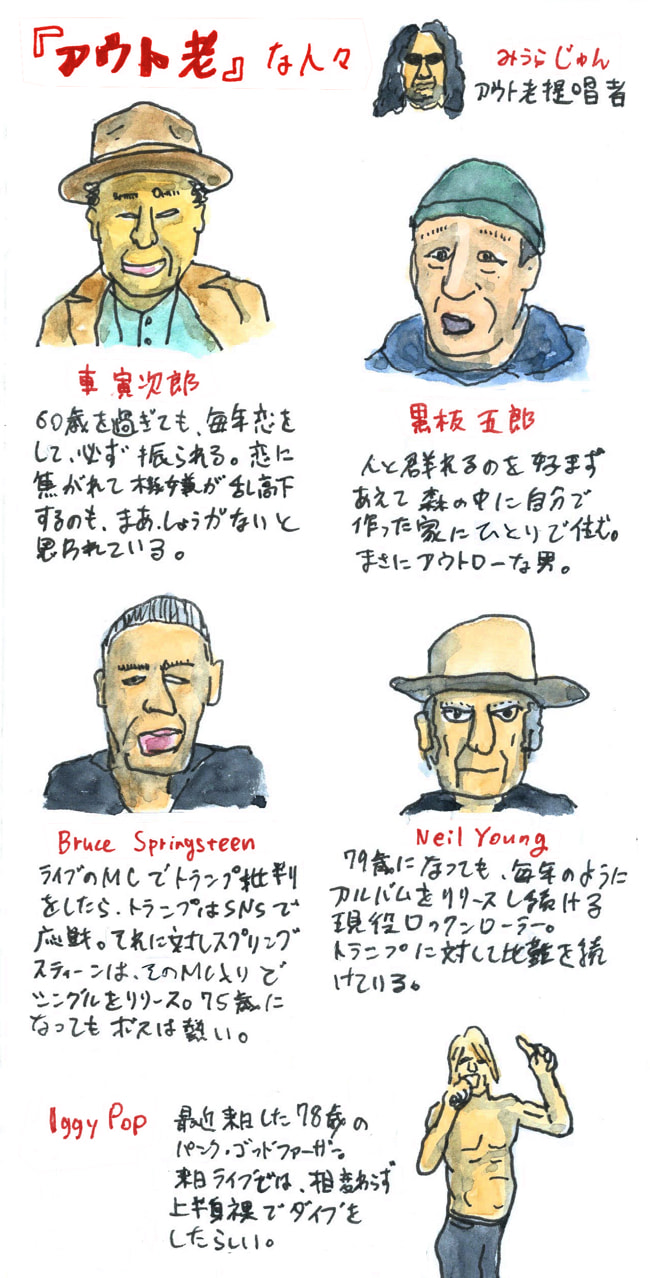 『アウト老』な人々
みうらじゅん
アウト老提唱者
車 寅次郎
60歳を過ぎても、毎年恋を
して、必ず振られる。恋に
焦がれて機嫌が乱高下
するのも、まあ、しょうがないと
思われている。
黒板 五郎
人と群れるのを好まず
あえて森の中に自分で
作った家にひとりで住む。
まさにアウトローな男。
Bruce Springsteen
ライブのMCでトランプ批判
をしたら、トランプはSNSで
応戦。それに対しスプリング
スティーンは、そのMC入りで
シングルをリリース。75歳に
なってもボスは熱い。
Neil Young
79歳になっても、毎年のように
アルバムをリリースし続ける
現役ロックンローラー。
トランプに対して批難を続
けている。
Iggy Pop
最近来日した78歳の
パンク・ゴッドファーザー。
来日ライブでは、相変わらず
上半身裸でダイブを
したらしい。